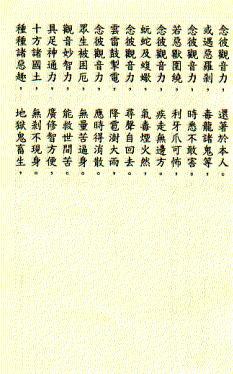 念彼觀音力，還著於本人。
或遇惡羅剎，毒龍諸鬼等，
念彼觀音力，時悉不敢害。
若惡獸圍繞，利牙爪可怖，
念彼觀音力，疾走無邊方。
蚖蛇及蝮蠍，氣毒煙火然，
念彼觀音力，尋聲自回去。
雲雷鼓掣電，降雹澍大雨，
念彼觀音力，應時得消散。
眾生被困厄，無量苦逼身，
觀音妙智力，能救世間苦。
具足神通力，廣修智方便，
十方諸國土，無剎不現身。
種種諸惡趣，地獄鬼畜生，